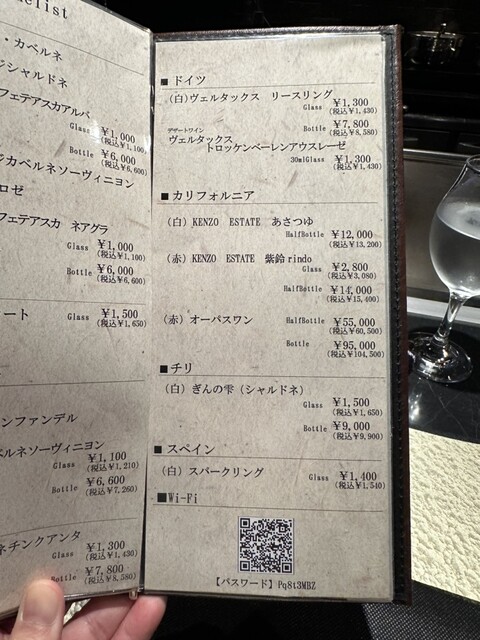 elist
・カベルネ
ジシャルドネ
フェテアスカアルバ
Glass ¥1,000
(税込¥1,100)
Bottle ¥6,000
(税込¥6,600)
カベルネソーヴィニヨン
ロゼ
フェテアスカ ネアグラ
Glass ¥1,000
(税込¥1,100)
Bottle ¥6,000
(税込¥6,600)
ート Glass ¥1,500
(税込¥1,650)
ンファンデル
ベルネソーヴィニヨン
Glass ¥1,100
(税込¥1,210)
Bottle ¥6,600
(税込¥7,260)
ネチンクアンタ
Glass ¥1,300
(税込¥1,430)
Bottle ¥7,800
(税込¥8,580)
■ドイツ
(白)ヴェルタックス リースリング
Glass ¥1,300
(税込¥1,430)
Bottle ¥7,800
(税込¥8,580)
デザートワイン
ヴェルタックス
トロッケンベーレンアウスレーゼ
30mlGlass ¥1,300
(税込¥1,430)
■カリフォルニア
(白) KENZO ESTATE あさつゆ
HalfBottle ¥12,000
(税込¥13,200)
(赤) KENZO ESTATE 紫鈴rindo
Glass ¥2,800
(税込¥3,080)
HalfBottle ¥14,000
(税込¥15,400)
(赤) オーパスワン HalfBottle ¥55,000
(税込¥60,500)
Bottle ¥95,000
(税込¥104,500)
■チリ
(白) ぎんの雫(シャルドネ)
Glass ¥1,500
(税込¥1,650)
Bottle ¥9,000
(税込¥9,900)
■スペイン
(白) スパークリング Glass ¥1,400
(税込¥1,540)
■Wi-Fi
【パスワード】Pq8t3MBZ